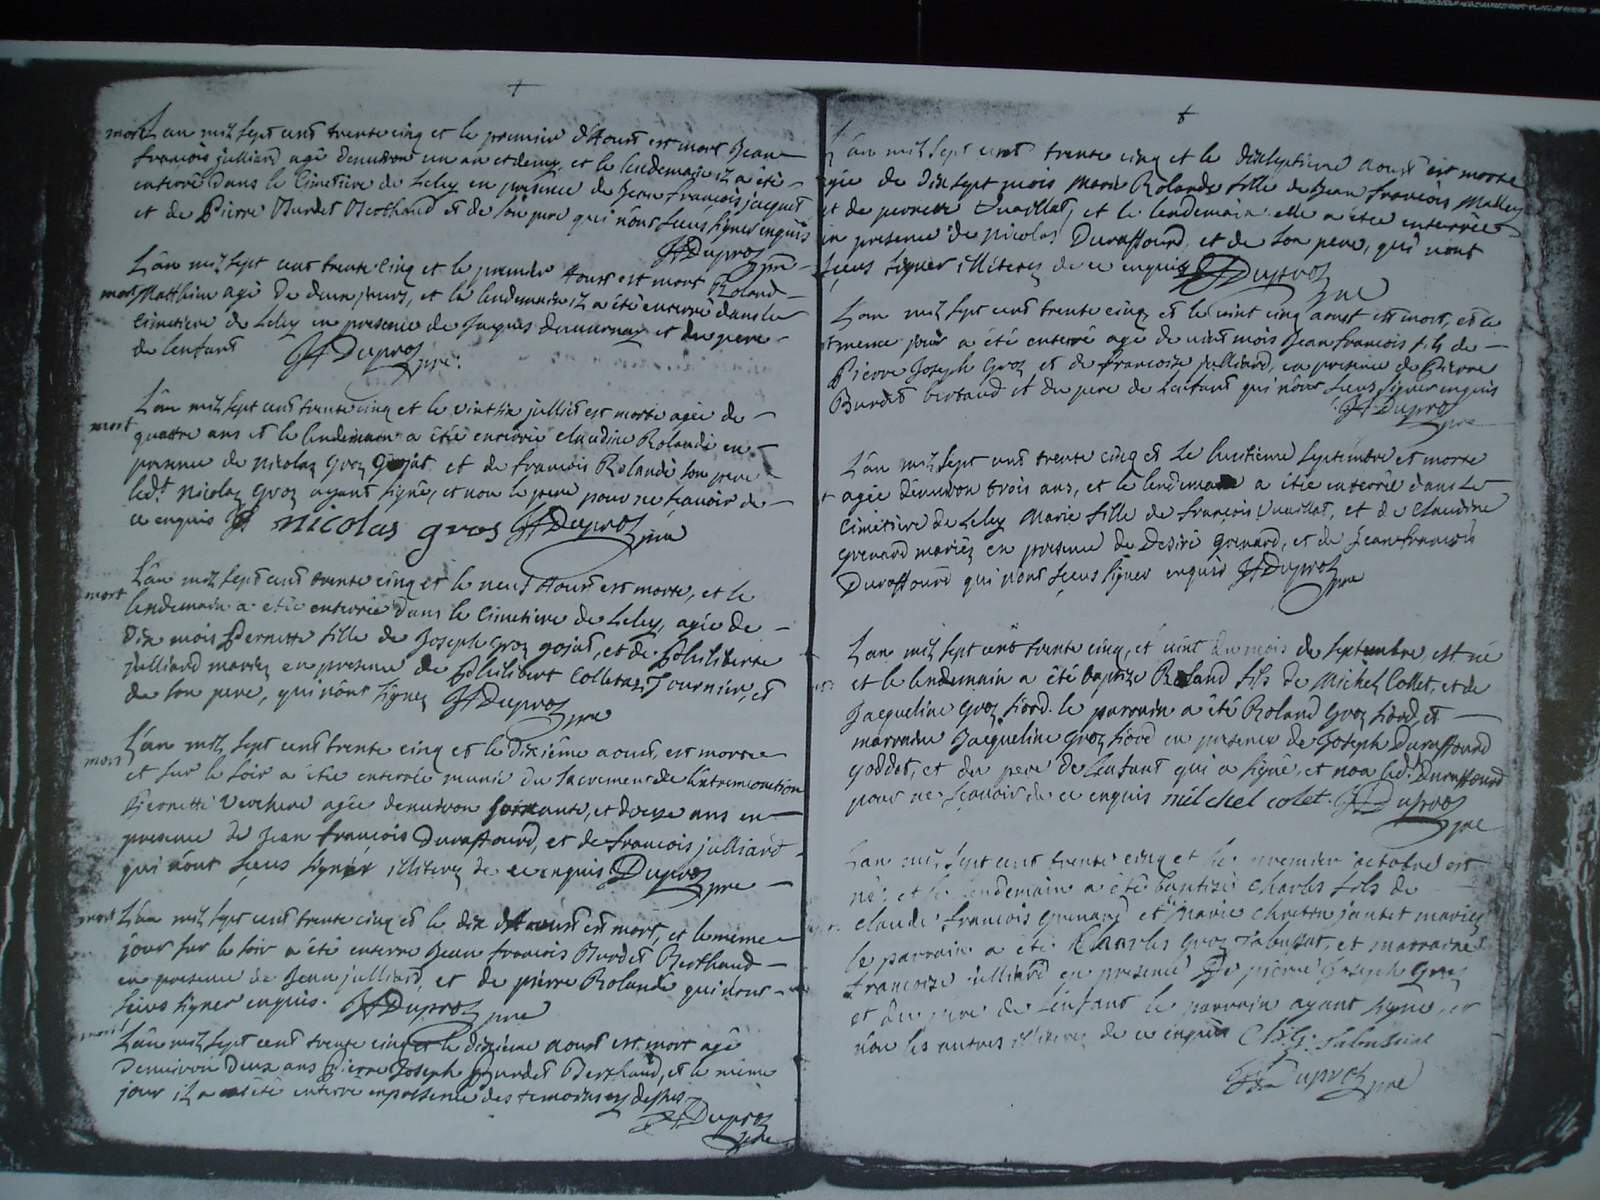 mort L'an mil sept cent trente cinq et le premier d'Aoust est mort Jean
francois julliard agé d'environ un an et demy, et le lendemain il a été
enterré dans le Cimetiere de Lelex en presence de Jean francois jacquet
et de Pierre Burdet Berthaud et de son pere qui n'ont sceus signer enquis
JH Duproz
pre
L'an mil sept cent trente cinq et le premier Aoust est mort Roland
mort Matthieu agé de deux jours, et le lendemain il a été enterré dans le
Cimetiere de Lelex en presence de Jaques et du pere
de l'enfant JH Duproz
pre.
L'an mil sept cent trente cinq et le vint six julliet est morte agée de
mort quattre ans et le lendemain a étée enterrée Claudine Rolande en
presence de Nicolas Groz Gojat et de francois Rolande son pere
led.t Nicolaz Groz ayant signé, et non le pere pour ne scavoir de
ce enquis nicolas gros JH Duproz
pre
L'an mil sept cent trente cinq et le neuf Aoust est morte, et le
mort lendemain a étée enterrée dans le Cimetiere de Lelex, agée de
dix mois Pernette fille de Joseph Groz gojat, et de Philiberte
julliard mariez en presence de Philibert Colletaz Tournier, et
de son pere, qui n'ont signez JH Duproz
pre
L'an mil sept cent trente cinq et le dixième aoust, est morte
mort et sur le soir a étée enterrée munie du sacrement de l'extremonction
Pernette Verchere agée denviron soixante, et douze ans en
presence de Jean francois Duraffourd, et de francois julliard
qui n'ont sceus signer illiterez de ce enquis Duproz
pre
mort L'an mil sept cent trente cinq et le dix d'Aoust est mort, et le même
jour sur le soir a été enterre Jean francois Burdet Berthaud
en presence de Jean julliard, et de pierre Rolande qui n'ont
sceus signer enquis. JH Duproz
pre
mort L'an mil sept cent trente cinq et le dixiéme aoust est mort agé
denviron deux ans Pierre Joseph Burdet Berthaud, et le même
jour il a été enterré en presence des temoins cy dessus
JH Duproz
pre
L'an mil sept cent trente cinq et le dixseptieme aoust est morte
agée de dix sept mois Marie Rolande fille de Jean francois Malley
et de pernette Vuaillat, et le lendemain elle a étée enterrée
in presence de Nicolas Duraffourd, et de son pere, qui n'ont
sceus signer illiterez de ce enquis JH Duproz
pre
L'an mil sept cent trente cinq et le vint cinq aoust est mort, et le
meme jour a été enterré agé de vint mois Jean francois fils de
Pierre Joseph Groz et de francoise julliard, en presence de Pierre
Burdet bertaud et du pere de l'enfant qui n'ont sceus signer enquis
JH Duproz
pre
L'an mil sept cent trente cinq et le huitieme septembre est morte
agée d'environ trois ans, et le lendemain a étée enterrée dans le
Cimetiere de Lelex Marie fille de francois Vuaillat, et de Claudine
Grenard mariez en presence de Desiré Grenard, et de Jean francois
Duraffourd qui n'ont sceus signer enquis JH Duproz
pre
L'an mil sept cent trente cinq, et vint du mois de septembre, est né
et le lendemain a été baptize Roland fils de Michel Collet, et de
Jacqueline Groz fiord. le parrain a été Roland Groz fiord, et
marraine Jacqueline Groz fiord en presence de Joseph Duraffourd
goddet, et du pere de l'enfant qui a signé, et non led.t Duraffourd
pour ne scavoir de ce enquis mil chel colet. JH Duproz
pre
L'an mil sept cent trente cinq et le premier octobre est
né; et le lendemain a été baptizé Charles fils de
Claude francois Grenard et Marie Chretin jantet mariez
le parrain a été Charles Groz Tabusat, et marraine
francoise julliard en presence de pierre Joseph Groz
et du pere de l'enfant le parrain ayant signe, et
non les autres illiterez de ce enquis Ch. G. Tabusiat
JH Duproz pre